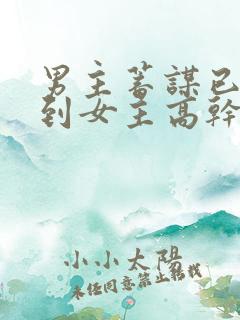 男主蓄謀已
到女主高幹
小小太陽
未經同意禁止轉載